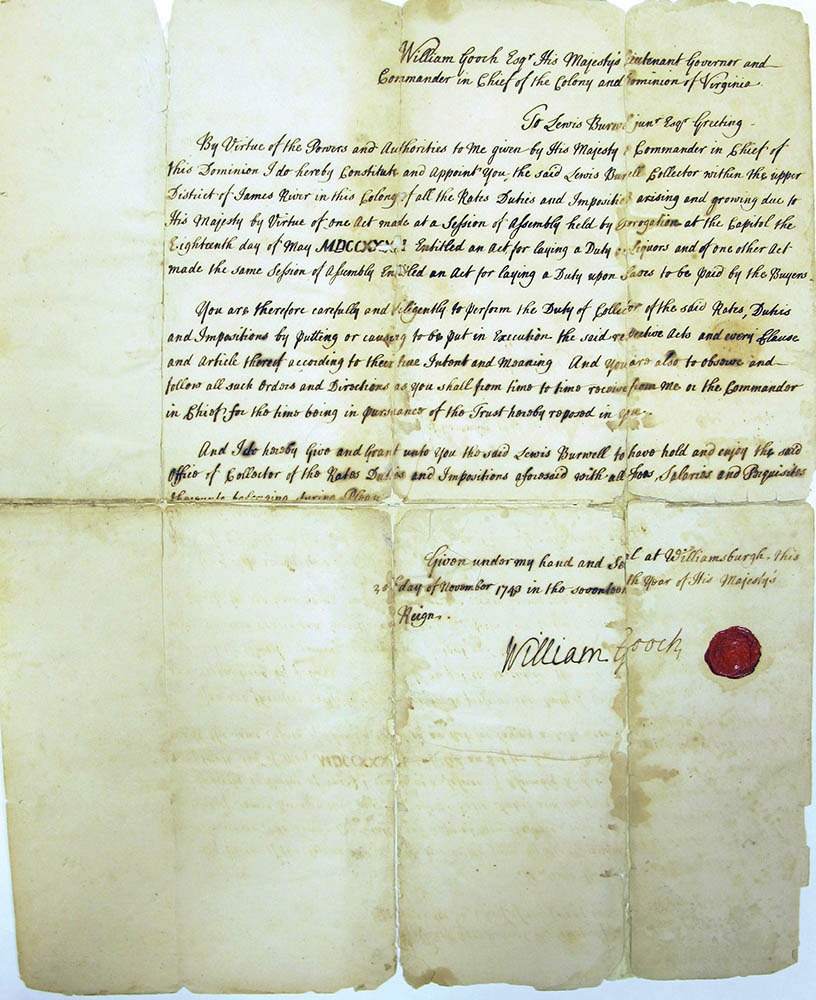 William Gooch Esqr. His Majesty's Lieutenant Governor and
Commander in Chief of the Colony and Dominion of Virginia.
To Lewis Burwell junr. Esqr. Greeting
By Virtue of the Powers and Authorities to Me given by His Majesty Commander in Chief of
this Dominion I do hereby Constitute and Appoint You the said Lewis Burwell Collector within the upper
District of James River in this Colony of all the Rates Duties and Impositions arising and growing due to
His Majesty by Virtue of one Act made at a Session of Assembly held by Prorogation at the Capitol the
Eighteenth day of May Entitled an Act for laying a Duty on Liquors and of one other Act
made the same Session of Assembly Entitled an Act for laying a Duty upon Slaves to be paid by the Buyers.
You are therefore carefully and diligently to perform the Duty of Collector of the said Rates, Duties
and Impositions by putting or causing to be put in Execution the said respective Acts and every Clause
and Article thereof according to their true Intent and Meaning And You are also to observe and
follow all such Orders and Directions as you shall from time to time receive from Me or the Commander
in Chief for the time being in pursuance of the Trust hereby reposed in you.
And I do hereby Give and Grant unto You the said Lewis Burwell to have hold and enjoy the said
Office of Collector of the Rates Duties and Impositions aforesaid with all Fees, Salaries and Perquisites
thereunto belonging during
Given under my hand and Seal at Williamsburgh this
day of November 1743 in the seventeenth Year of His Majesty's
Reign.
William Gooch